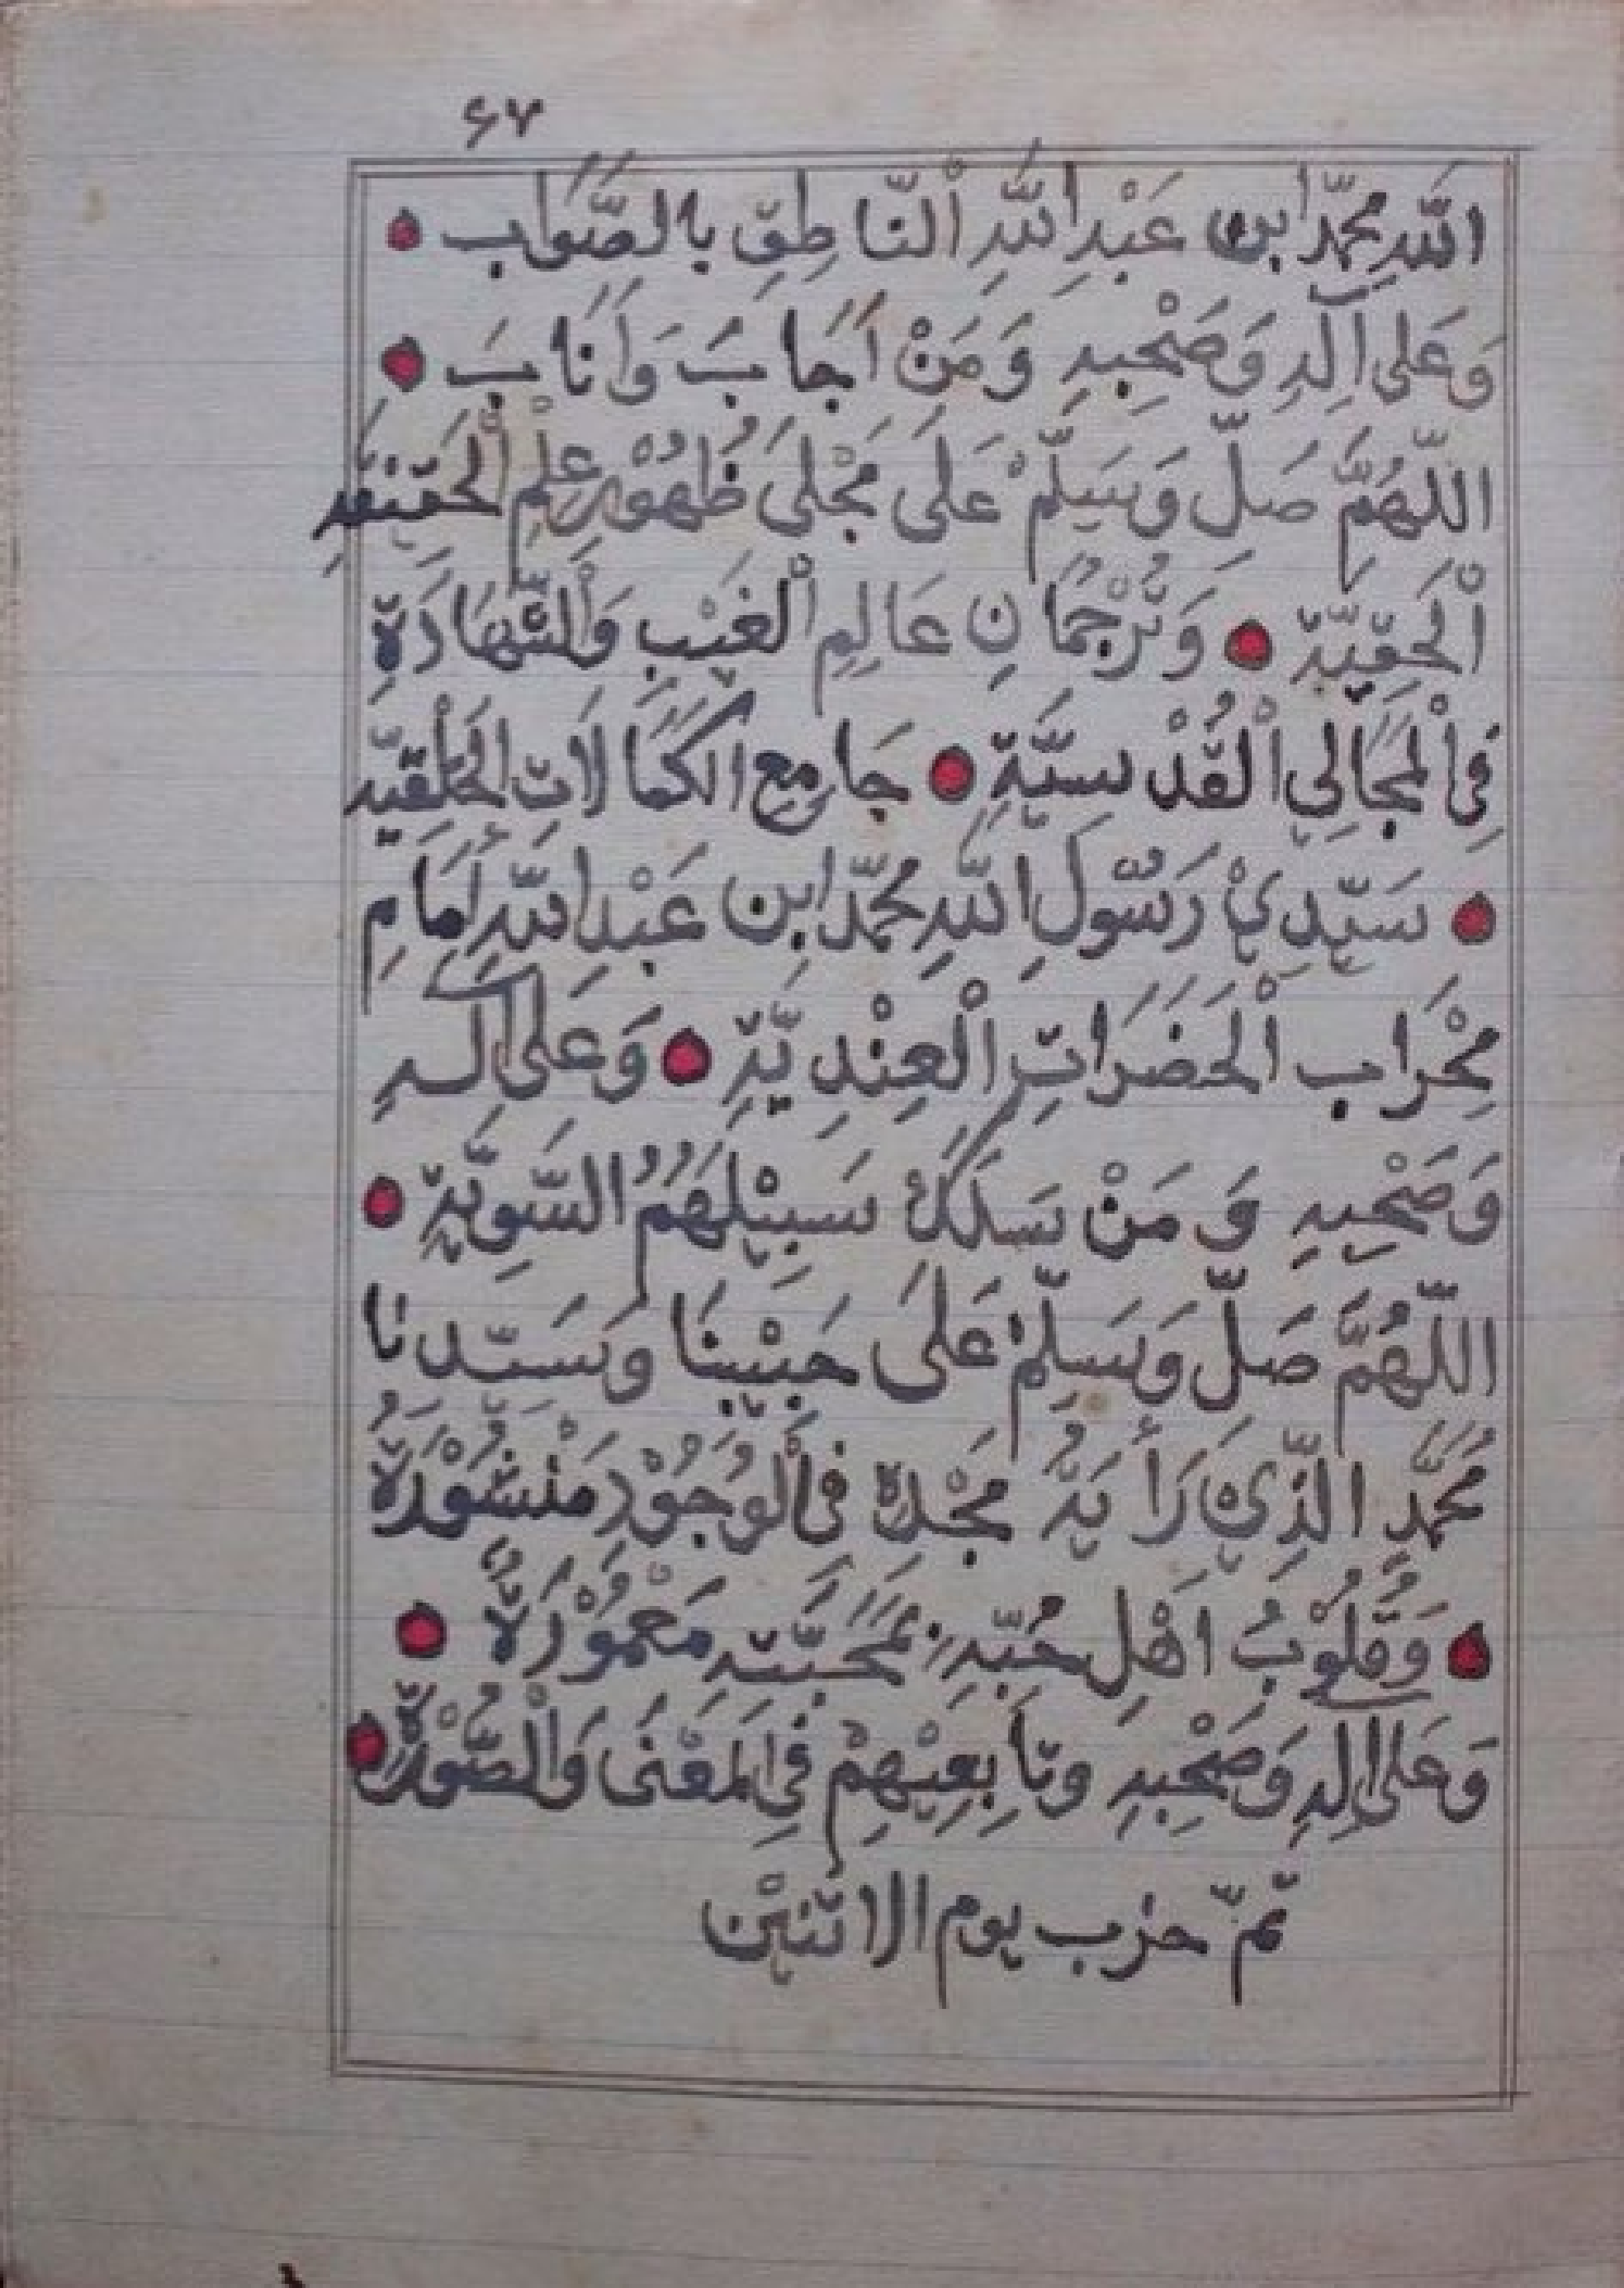 ۶۷
اللّٰهِ مُحَمَّد ابن عَبْدِ اللّٰهِ اْلنَّاطِقِ بِالصَّوَاب
وَعَلى آلِهِ وَصَحْبِهِ وَمَنْ اَجَابَ وَاَنَابَ
اللّهُمَّ صَلِّ وَسَلِّمْ عَلَى مَجْلَى ظُهُوْرِ عِلْمِ اْلحَقِيْقَةِ
اْلحَقِّيَّةِ وَتُرْجُمَانِ عَالِمِ اْلغَيْبِ وَالشَّهَادَة
فِى اْلمَجَالِي اْلقُدْسِيَّةِ جَامِعِ الكَمَالَاتِ الخَلْقِيَّةِ
سَيِّدِيْ رَسُوْلِ اللّٰهِ مُحَمَّد ابن عَبْدِ اللّٰهِ اِمَامِ
مِحْرَاب اْلحَضَرَاتِ اْلعِنْدِيَّةِ وَعَلى آلِهِ
وَصَحْبِهِ وَمَنْ سَلَكَ سَبِيْلَهُمُ السَّوِيَّةِ
اللّهُمَّ صَلِّ وَسَلِّمْ عَلَى حَبِيْبِنَا وَسَيِّدنا
مُحَمَّدٍ الَّذِيْ رَأيَةُ مَجْدِهِ فِى اْلوُجُوْدِ مَنْشُوْرَةٌ
وَقُلُوْبُ اَهْلِ حُبِّهِ بِمَحَبَّتِهِ مَعْمُوْرَةٌ
وَعَلى الِهِ وَصَحْبِهِ وتَابِعِيْهِمْ فِى المَعْنَى وَالْصُّوْرَة
تمّ حزب يوم الاثنَيْن